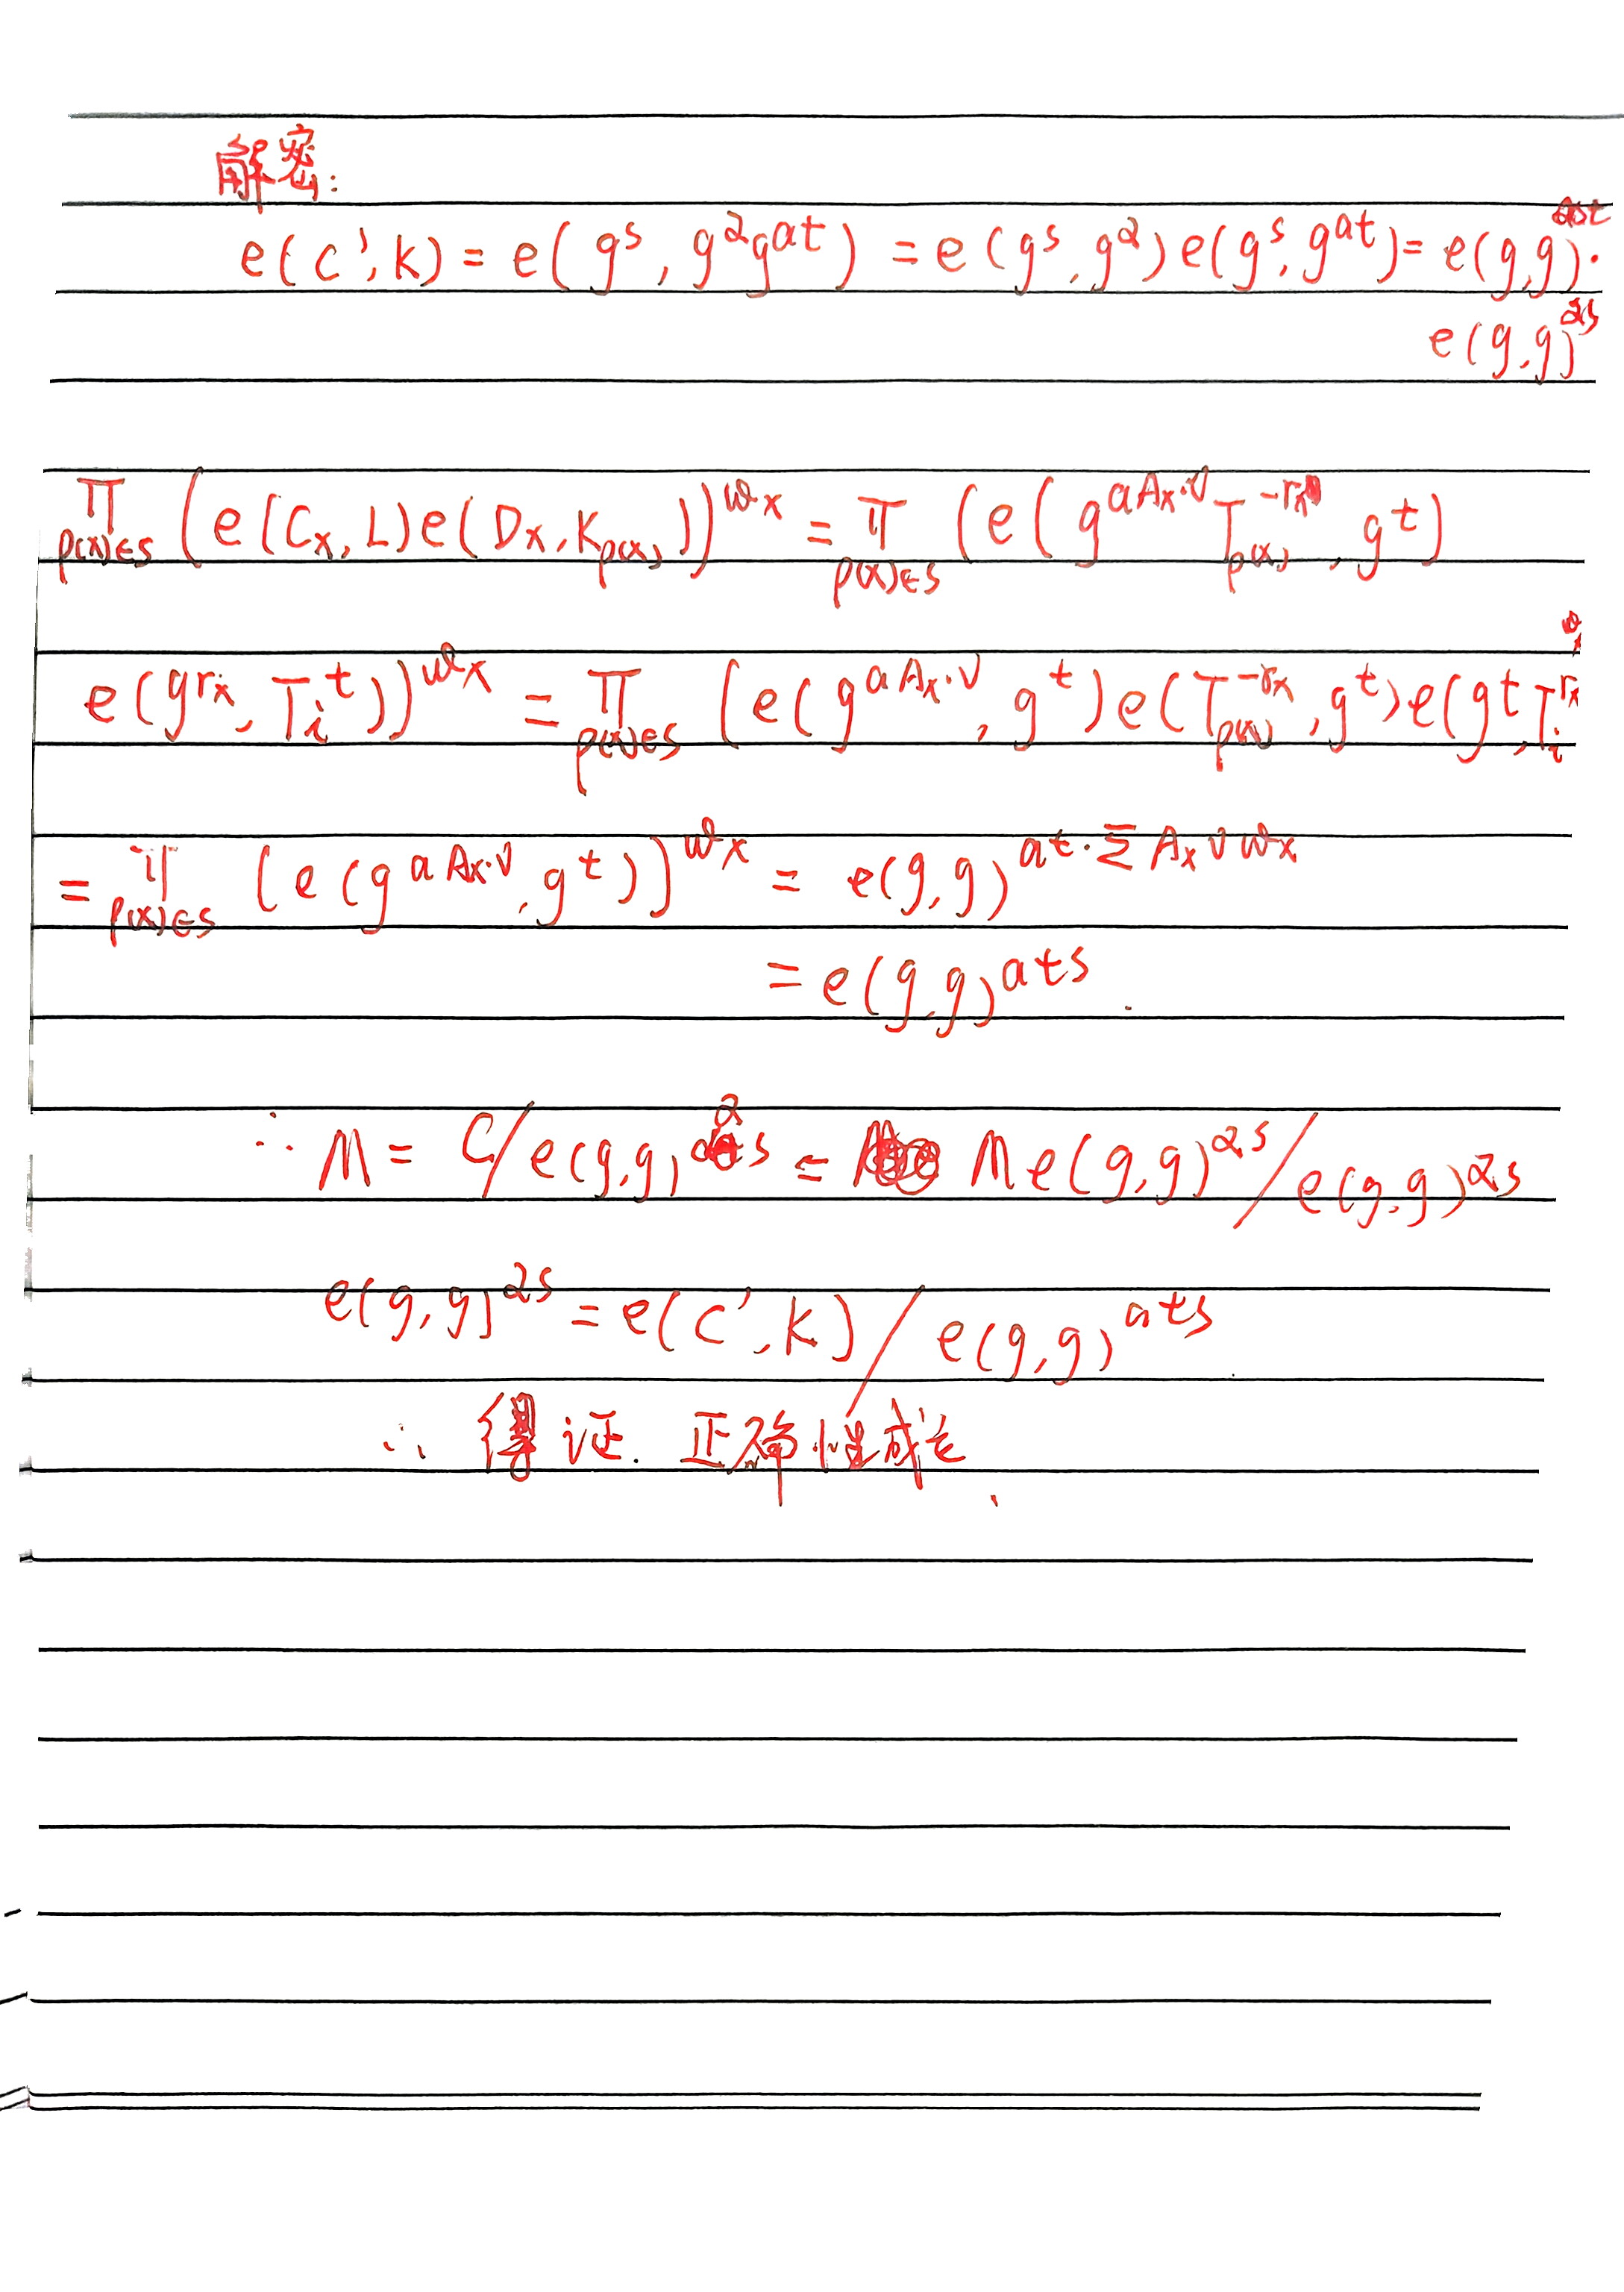 解密:
e(C',K) = e(g^s, g^α g^{at}) = e(g^s, g^α) e(g^s, g^{at}) = e(g,g)^{ast} ·
e(g,g)^{αs}
∏_{ρ(x)∈S} (e(C_x, L) e(D_x, K_{ρ(x)}))^{ω_x} = ∏_{ρ(x)∈S} (e(g^{aA_x·v} T_{ρ(x)}^{-r_x}, g^t)
e(g^{r_x}, T_i^t))^{ω_x} = ∏_{ρ(x)∈S} (e(g^{aA_x·v}, g^t) e(T_{ρ(x)}^{-r_x}, g^t) e(g^t, T_i^{r_x}
= ∏_{ρ(x)∈S} (e(g^{aA_x·v}, g^t))^{ω_x} = e(g,g)^{at·Σ A_x v ω_x}
= e(g,g)^{ats}.
∴ M = C/e(g,g)^{αs} = M e(g,g)^{αs}/e(g,g)^{αs}
e(g,g)^{αs} = e(C',K)/e(g,g)^{ats}
∴ 得证. 正确性成立.